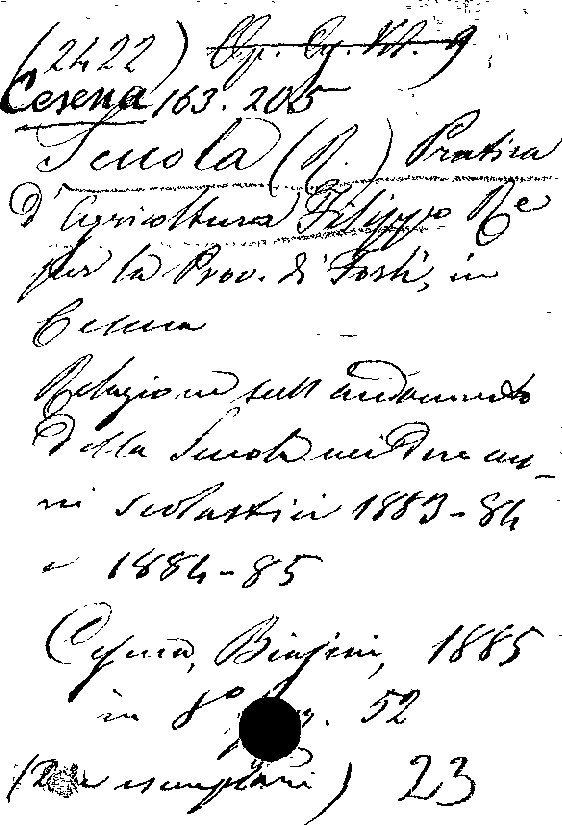 (2422) Op. Og. Vol. 9
Cesena 163. 205
Scuola (R.) Pratica
d'Agricoltura Filippo Re
per la Prov. di Forlì, in
Cesena
Relazione sull'andamento
della Scuola nei due an-
ni scolastici 1883-84
e 1884-85
Cesena, Biasini, 1885
in 8º pag. 52
(Due esemplari) 23